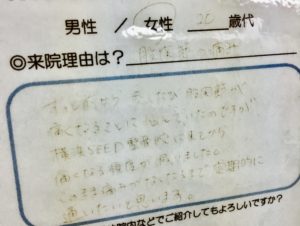 男性 / 女性 20 歳代
◎来院理由は? 股関節の痛み
ずっと前から 股関節が
痛くなることに悩んでいたのですが、
横浜SEED整骨院に来てから
痛くなる頻度が減りました。
このまま痛みがなくなるまで定期的に
通いたいと思います。
院内などでご紹介してもよろしいですか?